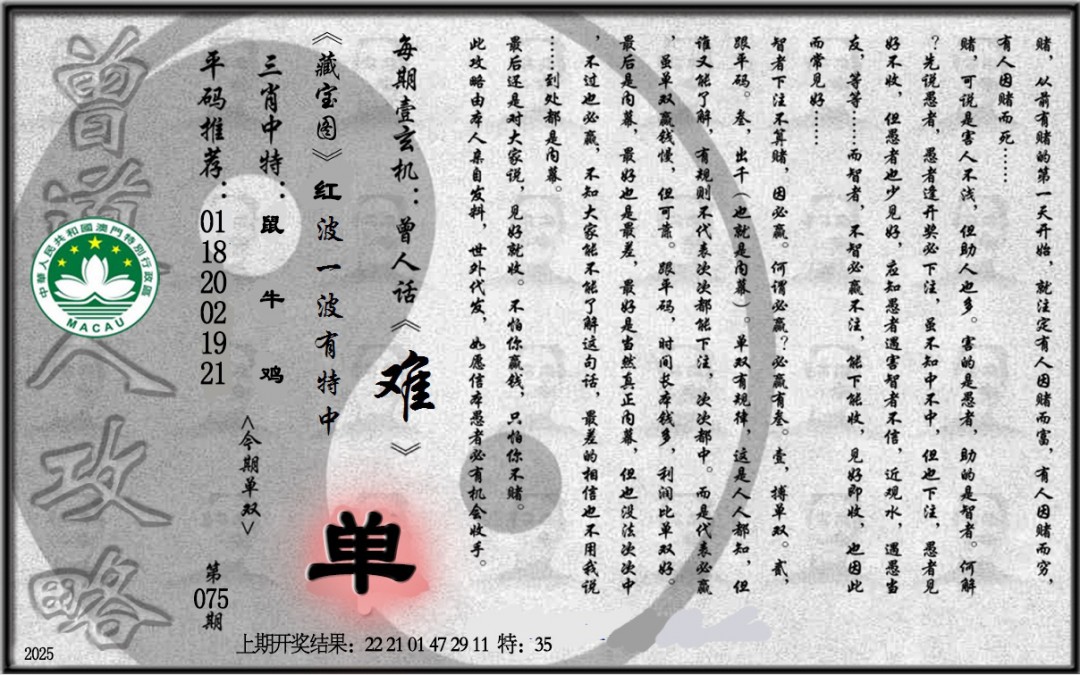 赌，从前有赌的第一天开始，就注定有人因赌而富，有人因赌而穷，
有人因赌而死……
赌，可说是害人不浅，但助人也多。害的是愚者，助的是智者。何解
？先说愚者，愚者逢开奖必下注，虽不知中不中，但也下注，愚者见
好不收，但愚者也少见好，应知愚者遇害智者不信，近观水，遇愚当
友，等等……而智者，不智必赢不注，能下能收，见好即收，也因此
而常见好……
智者下注不算赌，因必赢。何谓必赢？必赢有叁。壹，搏单双。贰，
跟平码。叁，出千（也就是内幕）。单双有规律，这是人人都知，但
谁又能了解，有规则不代表次次都能下注，次次都中。而是代表必赢
，虽单双赢钱慢，但可靠。跟平码，时间长本钱多，利润比单双好。
最后是内幕，最好也是最差，最好是当然真正内幕，但也没法次次中
，不过也必赢，不知大家能不能了解这句话，最差的相信也不用我说
……到处都是内幕。
最后还是对大家说，见好就收。不怕你赢钱，只怕你不赌。
此攻略由本人亲自发料，世外代发，如愿信本愚者必有机会收手。
每期壹玄机：曾人话《难》
《藏宝图》红波一波有特中
三肖中特：鼠 牛 鸡
平码推荐：01 18 20 02 19 21
<今期单双>
单
第075期
曾道人攻略
中華人民共和國澳門特別行政區
MACAU
上期开奖结果：22 21 01 47 29 11 特：35
2025